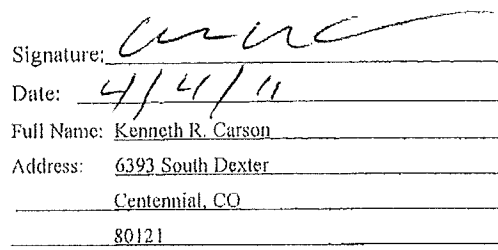 Signature:
Date: 4/4/11
Full Name: Kenneth R. Carson
Address: 6393 South Dexter
Centennial, CO
80121